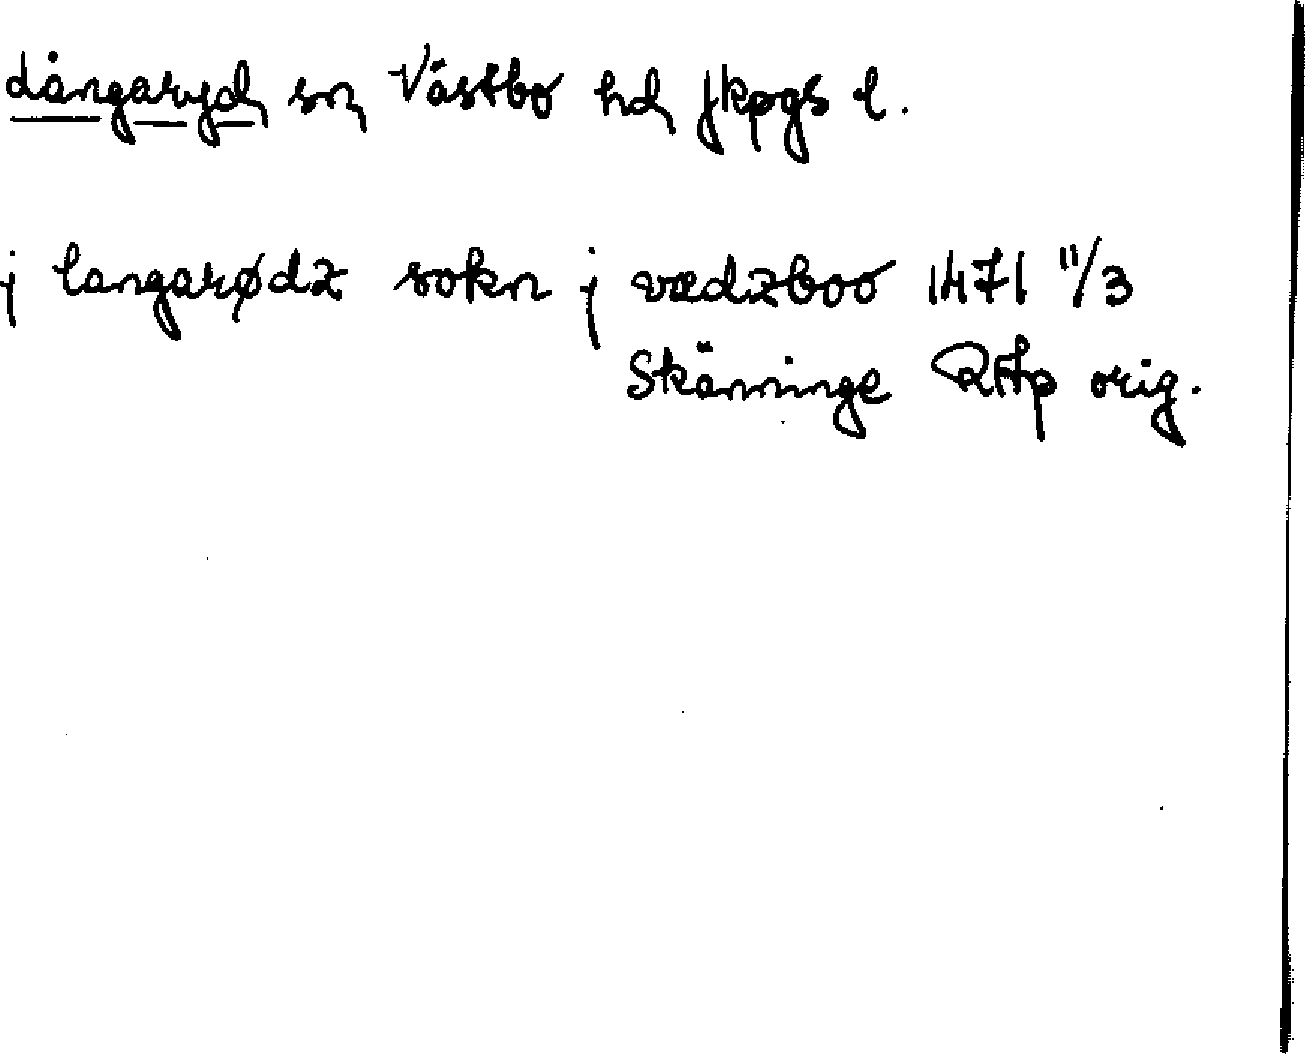 Långaryd sn Västbo hd Jkpgs l.
j langarødz sokn j vædzboo 1471 11/3
Skänninge RAp orig.